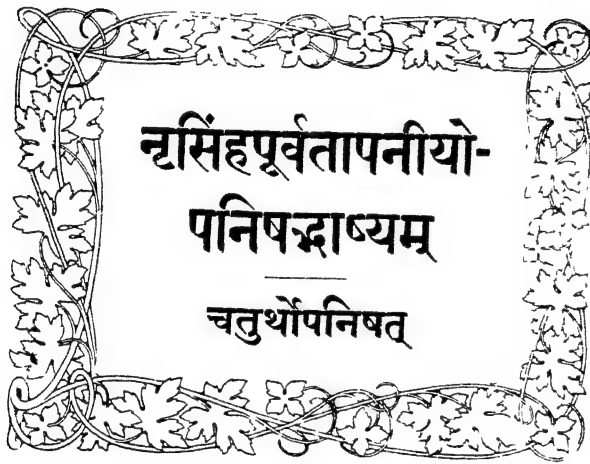 नृसिंहपूर्वतापनीयो-
पनिषद्भाष्यम्
चतुर्थोपनिषत्